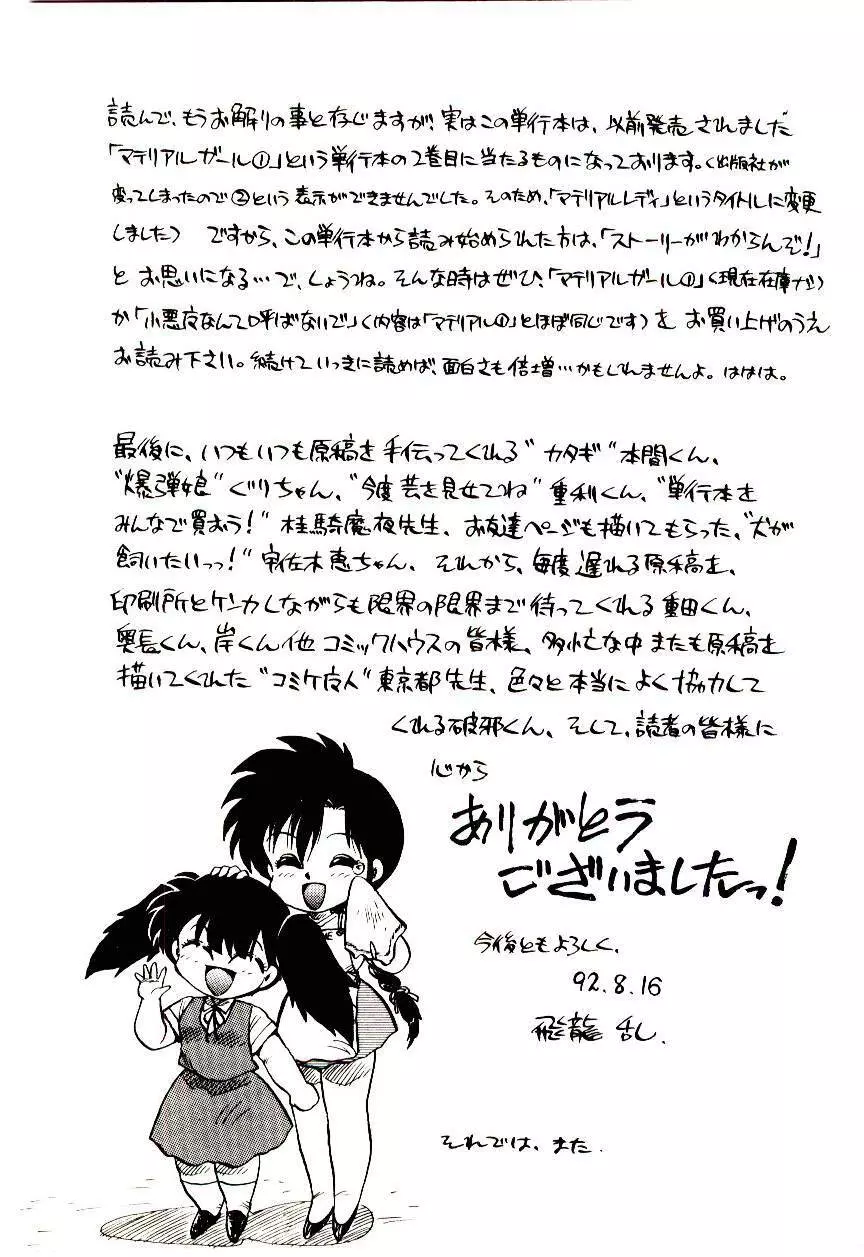 読んで、もうお解りの事と存じますが、実はこの単行本は、以前発売されました
「マテリアルガール①」という単行本の2巻目に当たるものになっております。〈出版社が
変ってしまったので②という表示ができませんでした。そのため、「マテリアルレディ」というタイトルに変更
しました〉 ですから、この単行本から読み始められた方は、「ストーリーがわからんぞ!」
と お思いになる…で、しょうね。そんな時はぜひ、「マテリアルガール①」〈現在在庫ナシ〉
か「小悪夜なんて呼ばないで」〈内容は「マテリアル①」とほぼ同じです〉を お買い上げのうえ
お読み下さい。続けていっきに読めば、面白さも倍増…かもしれませんよ。ははは。
最後に、いつもいつも原稿を手伝ってくれる"カタギ"本間くん、
"爆弾娘"ぐりちゃん、"今度芸を見せてね"重利くん、"単行本を
みんなで買おう!"桂騎魔夜先生、お友達ページも描いてもらった、"犬が
飼いたいっっ!"宇佐木恵ちゃん、それから、毎度遅れる原稿を、
印刷所とケンカしながらも限界の限界まで待ってくれる重田くん、
奥長くん、岸くん他コミックハウスの皆様、多忙な中またも原稿を
描いてくれた"コミケ友人"東京都先生、色々と本当によく協力して
くれる破邪くん、そして、読者の皆様に
心から
ありがとう
ございましたっ!
今後ともよろしく。
92.8.16
飛龍乱し
それでは、また